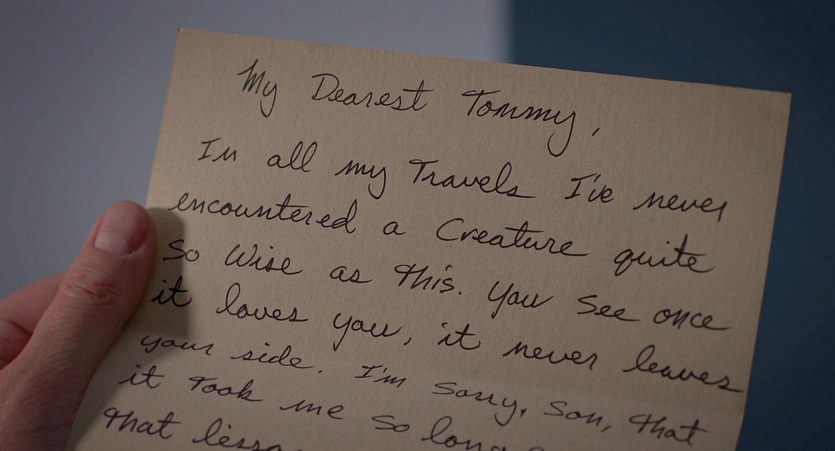 My Dearest Tommy,
In all my Travels I've never
encountered a Creature quite
so Wise as this. You See once
it loves you, it never leaves
your side. I'm sorry, Son, that
it Took me so long
That